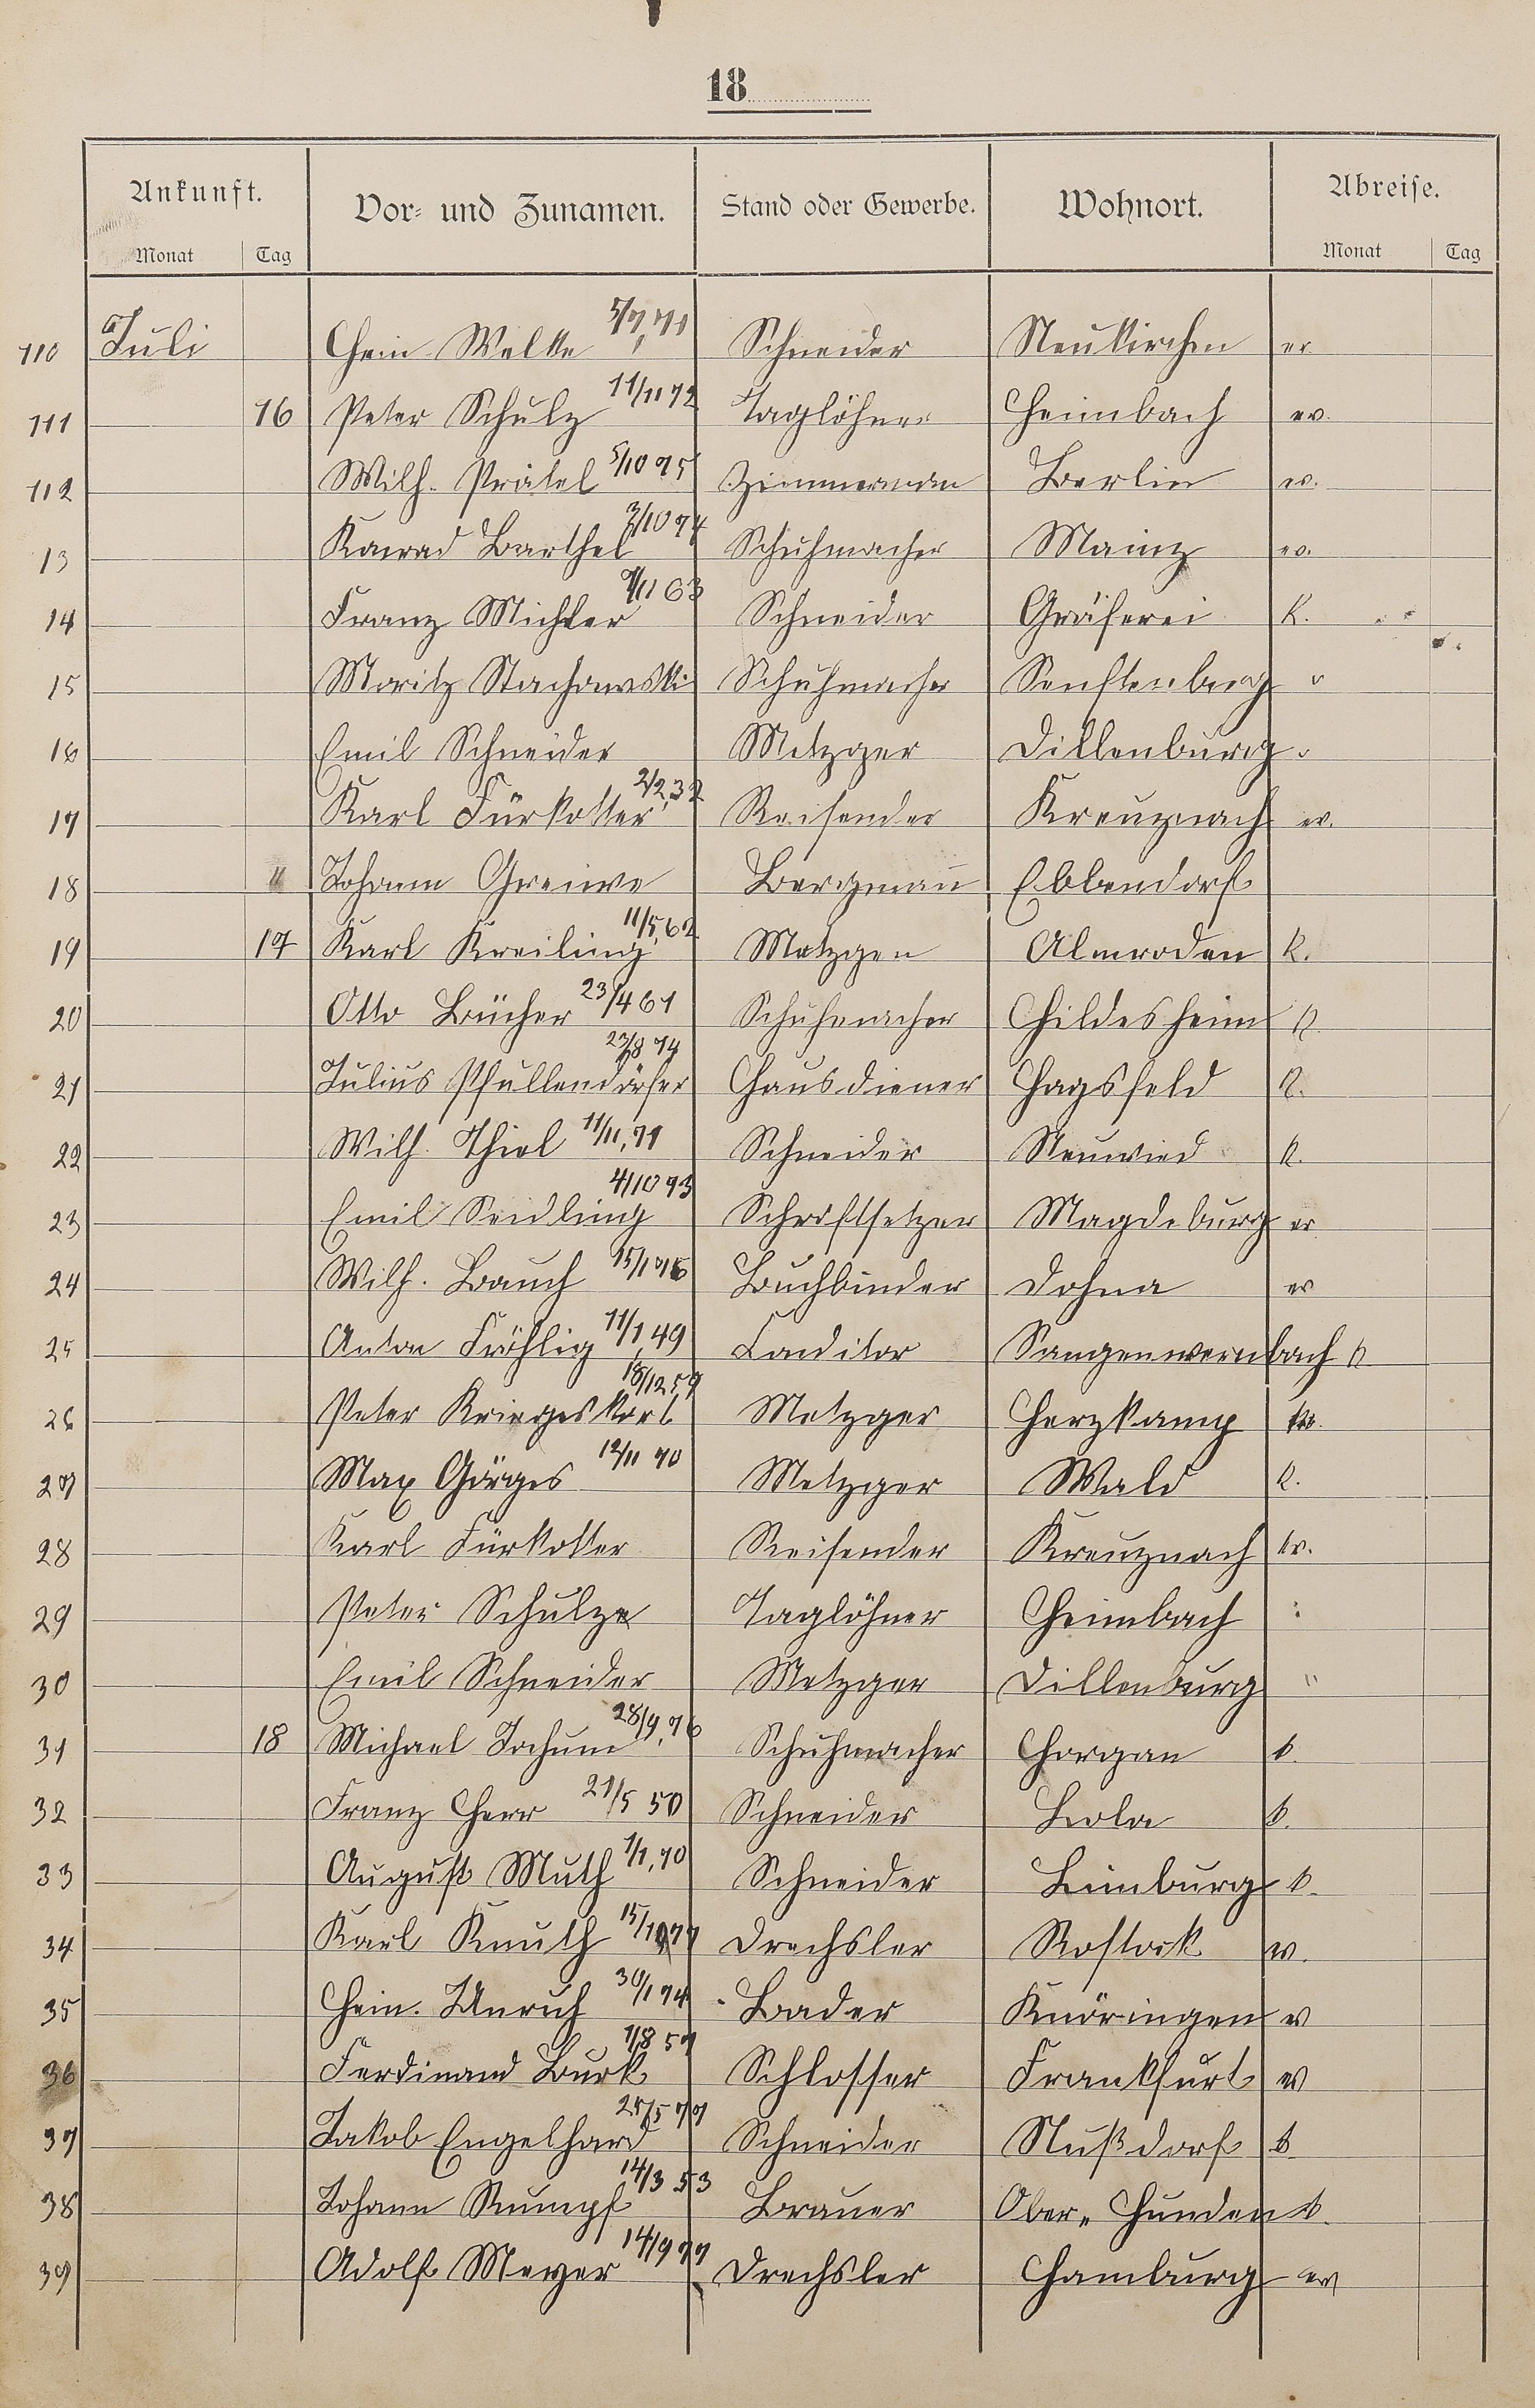 18
Ankunft. Vor- und Zunamen. Stand oder Gewerbe. Wohnort. Abreise.
Monat Tag Monat Tag
110 Juli Hein Welke 5/7, 71 Schneider Neukirchen ev.
111 16 Peter Schulz 11/11 72 Taglöhner Heimbach ev.
112 Wilh. Prätel 5/10 75 Zimmermann Berlin ev.
13 Konrad Barthel 3/10 74 Schuhmacher Mainz ev.
14 Franz Michler 9/11 63 Schneider Gräferei k.
15 Moritz Stachowski Schuhmacher Senftenberg "
16 Emil Schneider Metzger Dillenburg "
17 Karl Fürkotter 2/2, 32 Reisender Kreuznach ev.
18 " Johann Greiwe Bergmann Ebbendorf
19 17 Karl Kreiling 11/5, 62 Metzger Almroden k.
20 Otto Bücher 23/4 61 Schuhmacher Hildesheim k
21 Julius Pfullendörfer 23/8 74 Hausdiener Hagsfeld k.
22 Wilh. Thiel 11/11, 71 Schneider Neuwied k.
23 Emil Seidling 4/10 93 Schriftsetzer Magdeburg ev
24 Wilh. Bauch Buchbinder Dohna ev
25 Anton Fröhlig 11/1, 49 Conditor Sangenwernbach k
26 Peter Krieges Karl 18/12 59 Metzger Herzkamp
27 Max Görges 12/11 70 Metzger Wald k.
28 Karl Fürkotter Reisender Kreuznach ev.
29 Peter Schulz Taglöhner Heimbach "
30 Emil Schneider Metzger Dillenburg "
31 18 Michael Jochum 28/9, 76 Schuhmacher Horgan k.
32 Franz Herr 21/5 50 Schneider Lola k.
33 August Muth 1/1, 70 Schneider Limburg k.
34 Karl Knuth Drechsler Rostock ev.
35 Hein. Unruh 30/1 74 Bader Knöringen ev
36 Ferdinand Burk 1/8 57 Schlosser Frankfurt ev
37 Jakob Engelhard 25/5 77 Schneider Nußdorf k
38 Johann Rumpf 14/3 53 Brauer Ober= Hunden k.
39 Adolf Meyer 14/9 77 Drechsler Hamburg ev